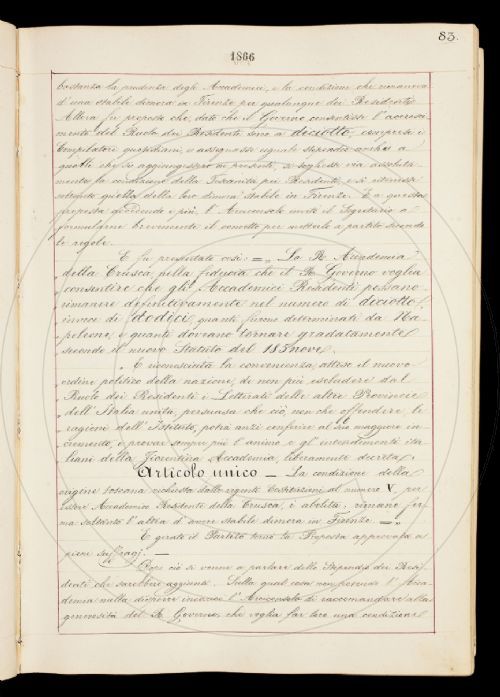 83.
1866
bastanza la prudenza degli Accademici, e la condizione che rimaneva
d'una stabile dimora in Firenze per qualunque dei Residenti.
Allora fu proposto che, dato che il Governo consentisse l'accresci-
mento del Ruolo dei Residenti sino a diciotto, compresi i
Compilatori quotidiani, e assegnasse uguale stipendio anche a
quelli che si aggiungessero ai presenti, si togliesse via assoluta-
mente la condizione della Toscanità pei Residenti, e si ritenesse
soltanto quella della loro dimora stabile in Firenze. E a questa
proposta aderendo i più, l'Arciconsolo invitò il Segretario a
formularne brevemente il concetto per metterlo a partito secondo
le regole.
E fu presentato così: = „ La R. Accademia
della Crusca, nella fiducia che il R. Governo voglia
consentire che gli Accademici Residenti possano
rimanere definitivamente nel numero di diciotto,
invece di dodici, quanti furono determinati da Na-
poleone, e quanti dovrano tornare gradatamente
secondo il nuovo Statuto del 185nove,
„ E riconosciuta la convenienza, atteso il nuovo
ordine politico della nazione, di non più escludere dal
Ruolo dei Residenti i Letterati delle altre Provincie
dell'Italia unita, persuasa che ciò, non che offendere le
ragioni dell'Istituto, potrà anzi conferire al suo maggiore in-
cremento, e provar sempre più l'animo e gl'intendimenti ita-
liani della Fiorentina Accademia, liberamente decreta,
Articolo unico — La condizione della
origine toscana richiesta dalle vigenti Costituzioni al numero V. per
essere Accademico Residente della Crusca, è abolita; rimane fer-
ma soltanto l'altra d'avere stabile dimora in Firenze. — „
E girato il Partito tornò la Proposta approvata a
pieni suffragj. —
Dopo ciò si venne a parlare dello Stipendio dei Resi-
denti che sarebbero aggiunti. Sulla qual cosa non potendo l'Acca-
demia nulla disporre incaricò l'Arciconsolo di raccomandare alla
generosità del R. Governo, che voglia far loro una condizione